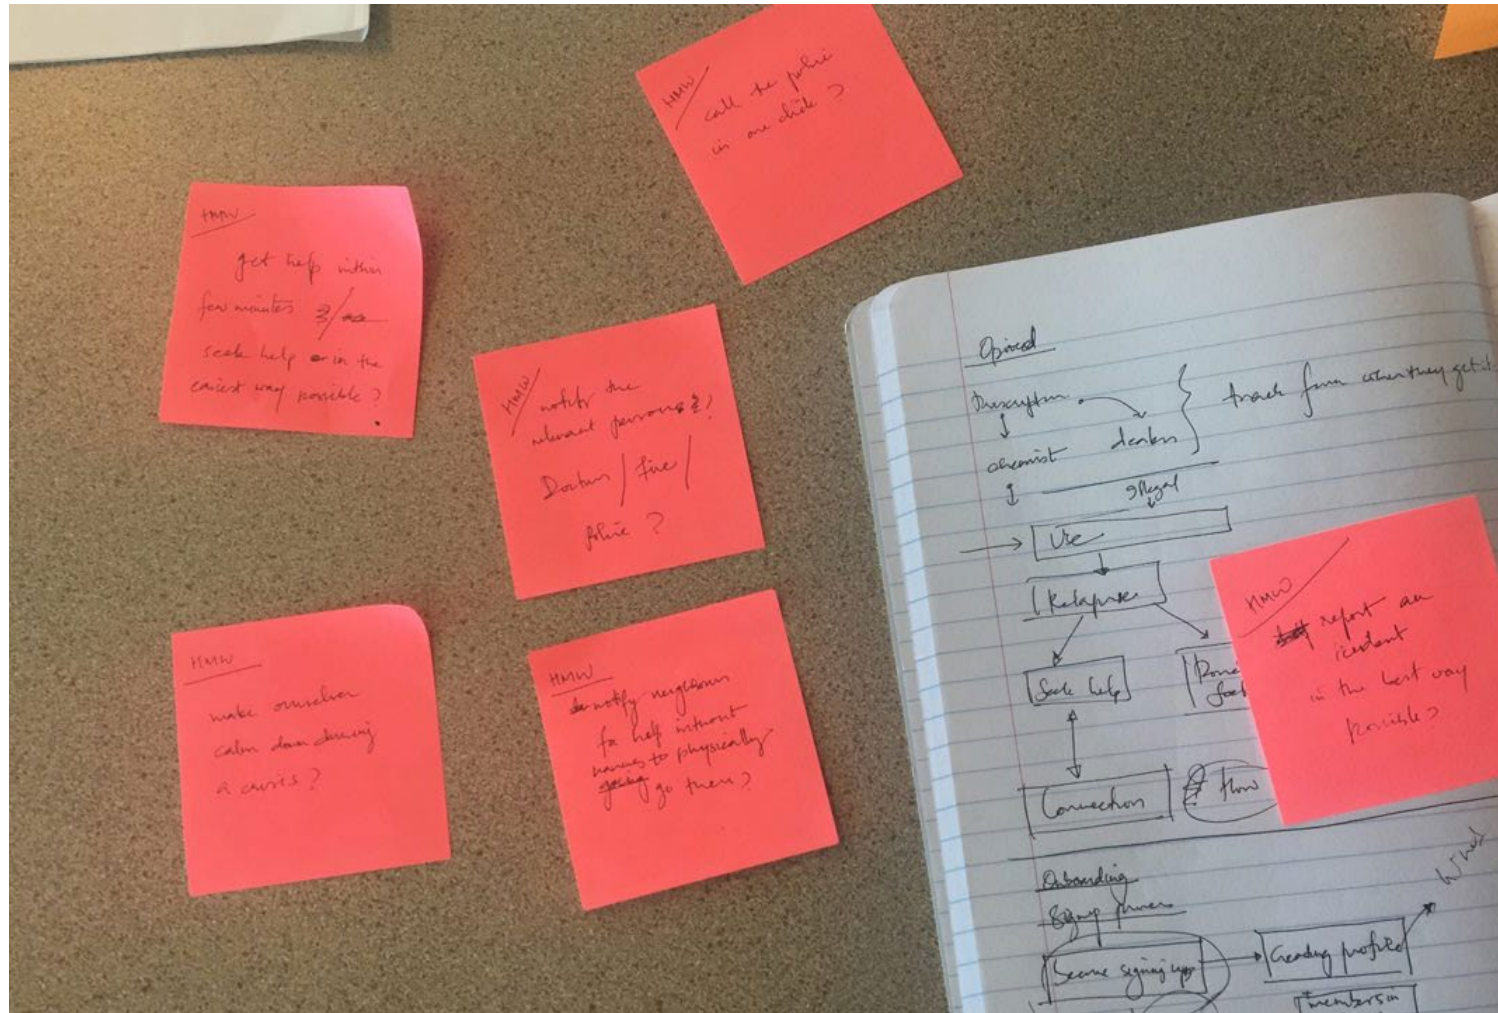 HMW
call the police
in one click ?
HMW
get help within
few minutes
seek help in the
easiest way possible ?
HMW
notify the
relevant persons ?
Doctors / fire /
police ?
HMW
make ourselves
calm down during
a crisis ?
HMW
notify neighbours
for help without
to physically
go there ?
Opioid
Prescription
track from where they get it
chemist dealers
illegal
Use
Relapse
Seek help
Connection
flow
HMW
report an
incident
in the best way
possible ?
Onboarding
Signup process
Secure signing up
Creating profile
members in